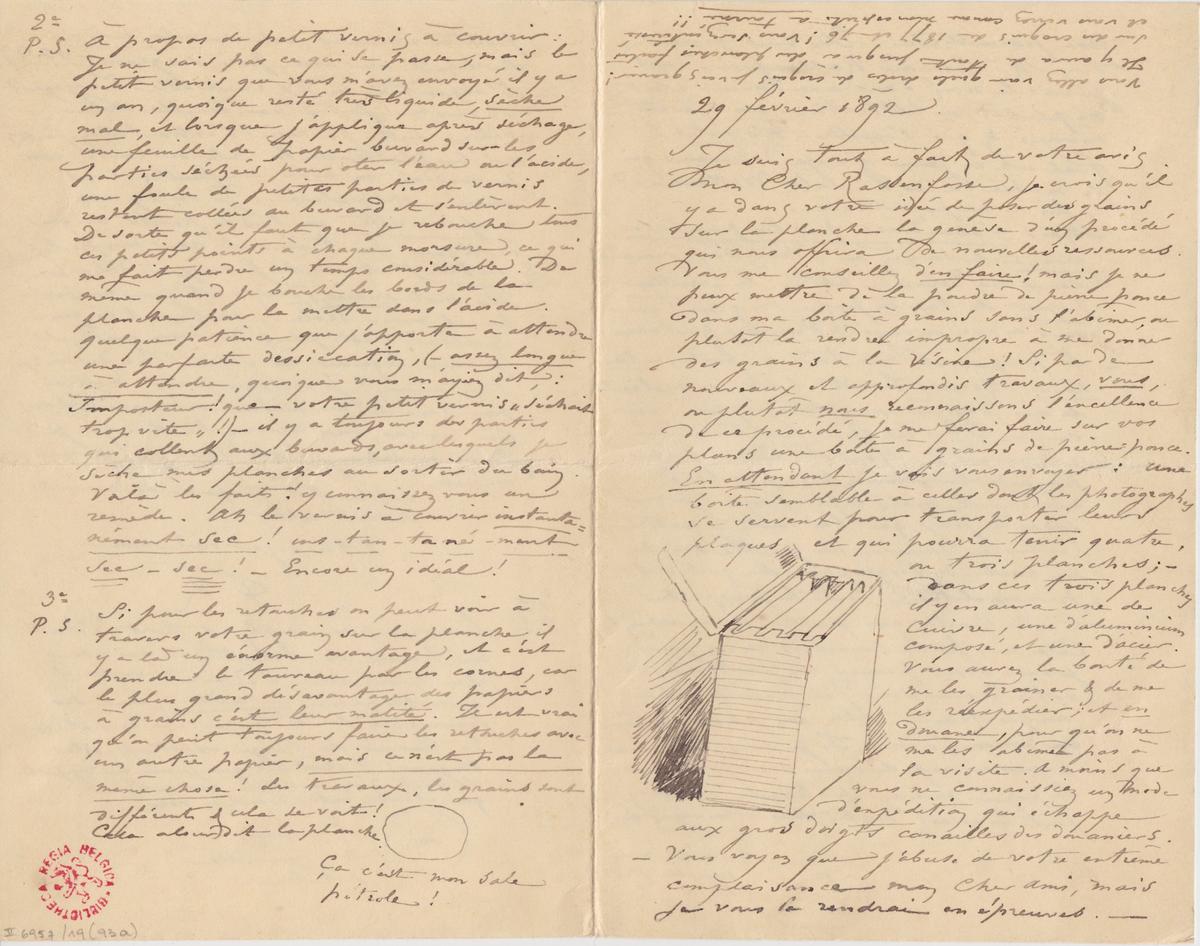 2e
P.S. À propos de petit vernis à couvrir :
Je ne sais pas ce qui se passe, mais le
petit vernis que vous m'avez envoyé il y a
un an, quoique resté très liquide, sèche
mal, et lorsque j'applique après séchage,
une feuille de papier buvard sur les
parties séchées pour oter l'eau ou l'acide,
une foule de petites parties de vernis
restent collées au buvard et s'enlèvent.
De sorte qu'il faut que je rebouche tous
ces petits points à chaque morsure, ce qui
me fait perdre un temps considérable. De
même quand je bouche les bords de la
planche pour la mettre dans l'acide.
quelque patience que j'apporte à attendre
une parfaite dessiccation, (- assez longue
à attendre, quoique vous m'ayiez dit,:
Imposteur! que votre petit vernis „séchait
trop vite„!)- il y a toujours des parties
qui collent aux buvards avec lesquels je
sèche mes planches au sortir du bain.
Voilà les faits! y connaissez vous un
remède. Ah le vernis à couvrir instanta=
nément sec! ins-tan-ta né-ment
sec - sec! - Encore un idéal!
3e
P.S. Si pour les retouches on peut voir à
travers votre grain sur la planche, il
y a là un énorme avantage, et c'est
prendre le taureau par les cornes, car
le plus grand désavantage des papiers
à grains c'est leur matité. Il est vrai
qu'on peut toujours faire les retouches avec
un autre papier, mais ce n'est pas la
même chose! les travaux, les grains sont
différents & cela se voit!
Cela alourdit la planche
Ça c'est mon sale
pétrole!
BIBLIOTHECA REGIA BELGICA
II 6957/19(93a)
Vous allez voir quels drôles de croquis je vous grave!
Il y aura de tout jusqu'à des planches faites
sur des croquis de 1877 et 76! Vous serez
et vous verrez comme mon esprit a tourné!!
29 février 1892.
Je suis tout à fait de votre avis
Mon Cher Rassenfosse, je crois qu'il
y a dans votre idée de poser des grains
sur la planche la genèse d'un procédé
qui nous offrira de nouvelles ressources.
Vous me conseillez d'en faire! mais je ne
peux mettre de la poudre de pierre ponce
dans ma boite à grains sans l'abimer, ou
plutôt la rendre impropre à me donner
des grains à la résine! Si par de
nouveaux et approfondis travaux, vous,
ou plutôt nous reconnaissons l'excellence
de ce procédé, je me ferai faire sur vos
plans une boîte à grains de pierre ponce.
En attendant je vais vous envoyer : une
boîte semblable à celles dont les photographes
se servent pour transporter leurs
plaques et qui pourra tenir quatre,
ou trois planches; -
Dans ces trois planches
il y en aura une de
cuivre, une d'aluminium
composé, et une d'acier.
Vous aurez la bonté de
me les grainer & de me
les réexpédier; et en
douane, pour qu'on ne
me les abime pas à
la visite. A moins que
vous ne connaissiez un mode
d'expédition qui échappe
aux gros doigts canailles des douaniers.
- Vous voyez que j'abuse de votre extrême
complaisance mon Cher ami, mais
je vous la rendrai en épreuves. -